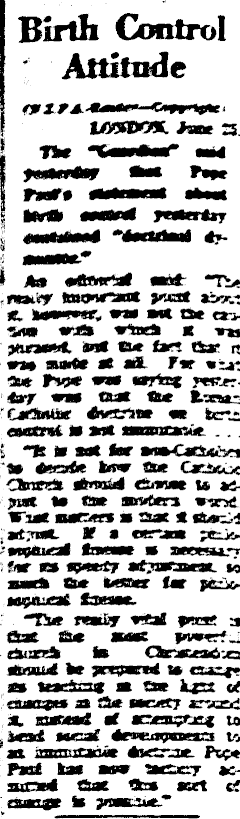 Birth Control
Attitude
(N.Z.P.A. Reuter—Copyright)
LONDON, June 25.
The "Guardian" said
yesterday that Pope
Paul's statement about
birth control yesterday
contained "doctrinal dy-
namite."
An editorial said: "The
really important point about
it, however, was not the cau-
tion with which it was
phrased, but the fact that it
was made at all. For what
the Pope was saying yester-
day was that the Roman
Catholic doctrine on birth
control is not immutable. . . .
"It is not for non-Catholics
to decide how the Catholic
Church should choose to ad-
just to the modern world.
What matters is that it should
adjust. If a certain philo-
sophical finesse is necessary
for its speedy adjustment, so
much the better for philo-
sophical finesse.
"The really vital point is
that the most powerful
church in Christendom
should be prepared to change
its teaching in the light of
changes in the society around
it, instead of attempting to
bend social developments to
an immutable doctrine. Pope
Paul has now tacitly ad-
mitted that this sort of
change is possible."